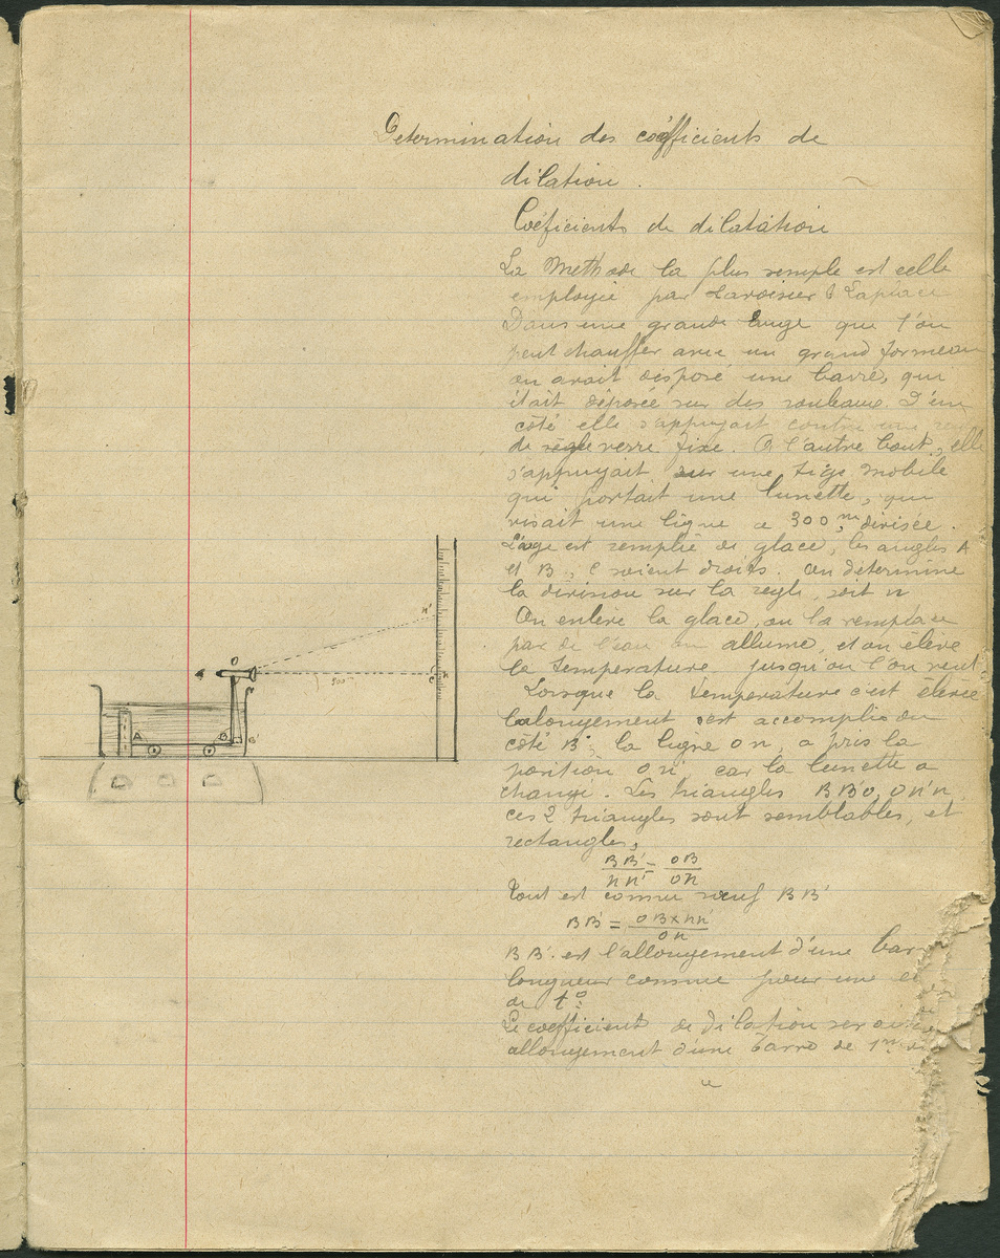 Determination des coéfficients de
dilation.
Coéficients de dilatation
La Methode la plus semple est celle
employée par Lavoisier & Laplace
Dans une grande auge que l'on
peut chauffer avec un grand forneau
on avait disposé une barre, qui
était déposée sur des rouleaux. D'un
côté elle s'appuyait contre une
de règle verre fixe. A l'autre bout, elle
s'appuyait sur une tige mobile
qui portait une lunette, qui
visait une ligne a 300 m divisée.
L'age est remplie de glace, les angles A
et B, C soient droits. On determine
la division sur la regle, soit n
On enlève la glace, on la remplace
par de l'eau on allume, et on élève
la temperature jusqu'ou l'on veut.
Lorsque la temperature c'est élevée
l'alongement est accomplie du
côté B', la ligne on, a pris la
position on' car la lunette a
changé. Les triangles BB'o, on'n
ces 2 triangles sont semblables, et
rectangles,
BB'/nn' = oB/on
Tout est connu sauf BB'
BB' = oB×nn'/on
BB' est l'allongement d'une bar
longueur connue pour une
de t°:
Le coefficient de dilation sera
allongement d'une barre de 1m
A
o
n'
300m
A
B
B'